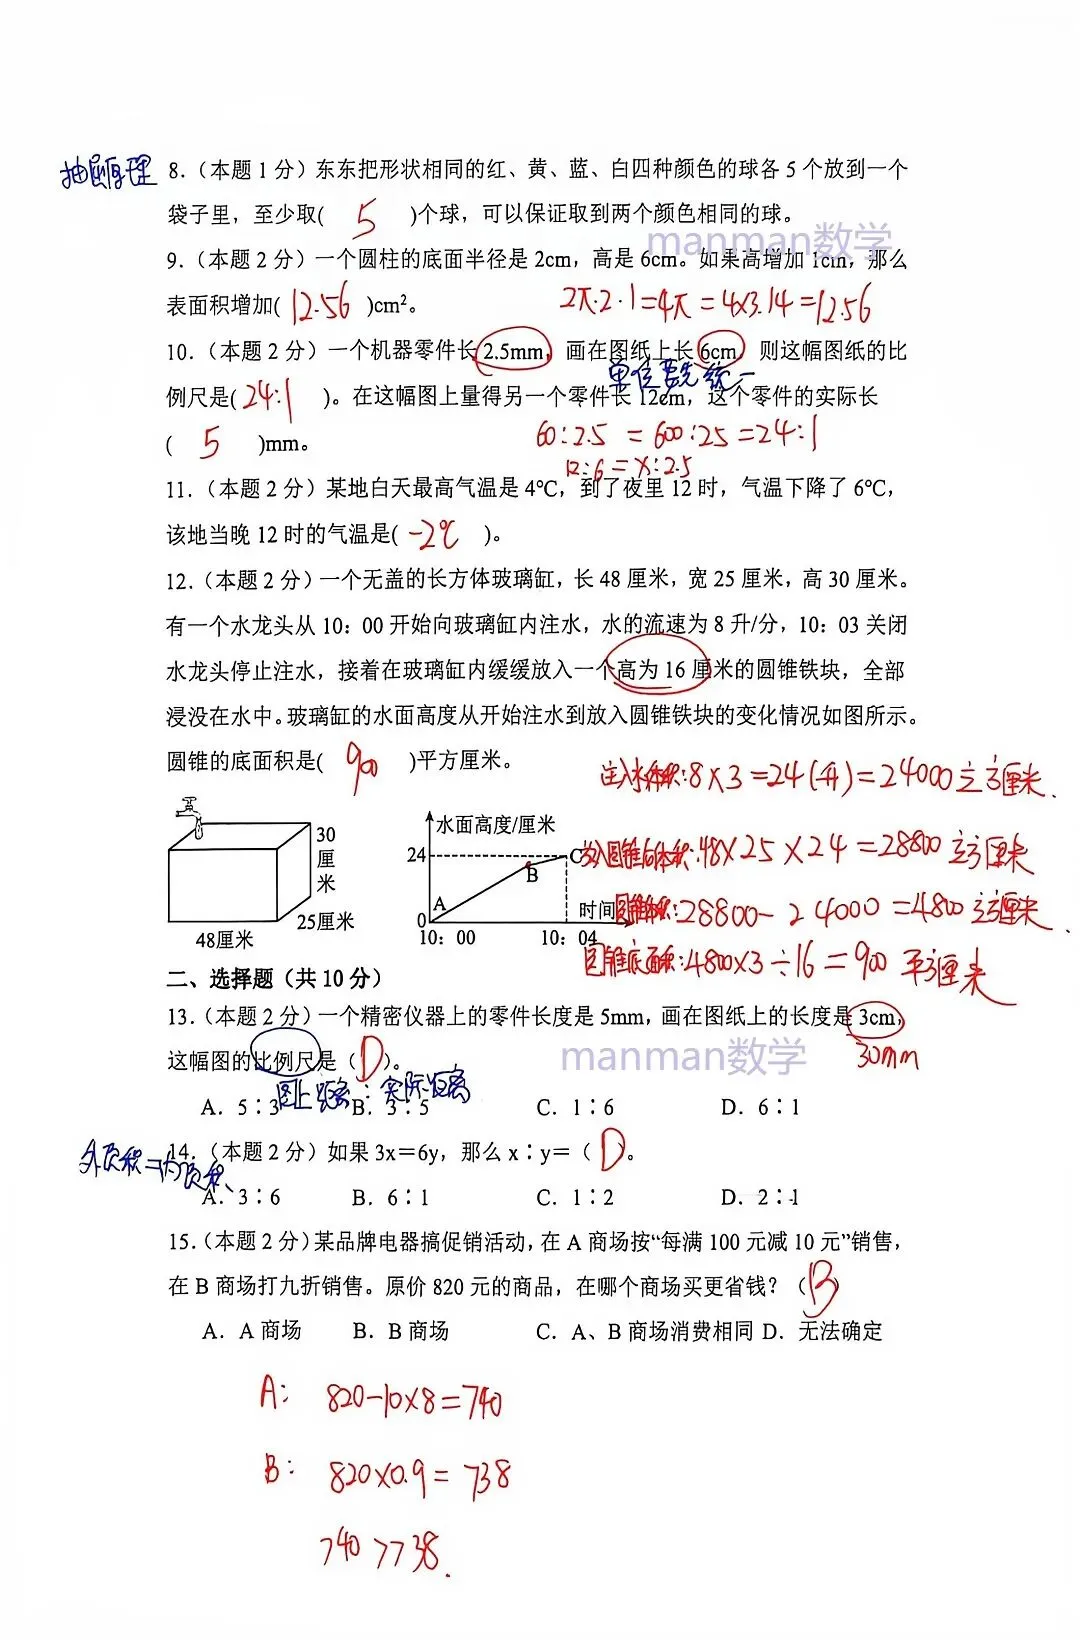 抽屉原理
8.（本题 1 分）东东把形状相同的红、黄、蓝、白四种颜色的球各 5 个放到一个
袋子里，至少取( 5 )个球，可以保证取到两个颜色相同的球。
manman数学
9.（本题 2 分）一个圆柱的底面半径是 2cm，高是 6cm。如果高增加 1cm，那么
表面积增加( 12.56 )cm²。
2π·2·1=4π=4×3.14=12.56
10.（本题 2 分）一个机器零件长 2.5mm，画在图纸上长 6cm，则这幅图纸的比
单位要先统一
例尺是( 24:1 )。在这幅图上量得另一个零件长 12cm，这个零件的实际长
( 5 )mm。
60:2.5=600:25=24:1
12:6=x:2.5
11.（本题 2 分）某地白天最高气温是 4℃，到了夜里 12 时，气温下降了 6℃，
该地当晚 12 时的气温是( -2℃ )。
12.（本题 2 分）一个无盖的长方体玻璃缸，长 48 厘米，宽 25 厘米，高 30 厘米。
有一个水龙头从 10：00 开始向玻璃缸内注水，水的流速为 8 升/分，10：03 关闭
水龙头停止注水，接着在玻璃缸内缓缓放入一个高为 16 厘米的圆锥铁块，全部
浸没在水中。玻璃缸的水面高度从开始注水到放入圆锥铁块的变化情况如图所示。
圆锥的底面积是( 900 )平方厘米。
注入水体积:8×3=24(升)=24000立方厘米.
放入圆锥后体积:48×25×24=28800立方厘米
圆锥体积:28800-24000=4800立方厘米.
圆锥底面积:4800×3÷16=900平方厘米
30
厘
米
25厘米
48厘米
水面高度/厘米
24
C
B
A
0
时间
10：00
10：04
二、选择题（共 10 分）
13.（本题 2 分）一个精密仪器上的零件长度是 5mm，画在图纸上的长度是 3cm，
30mm
这幅图的比例尺是（ D ）。
manman数学
图上距离:实际距离
A．5∶3 B．3∶5 C．1∶6 D．6∶1
外项积=内项积、
14.（本题 2 分）如果 3x＝6y，那么 x∶y＝（ D ）。
A．3∶6 B．6∶1 C．1∶2 D．2∶1
15.（本题 2 分）某品牌电器搞促销活动，在 A 商场按“每满 100 元减 10 元”销售，
在 B 商场打九折销售。原价 820 元的商品，在哪个商场买更省钱？（ B ）
A．A 商场 B．B 商场 C．A、B 商场消费相同 D．无法确定
A: 820-10×8=740
B: 820×0.9=738
740>738.